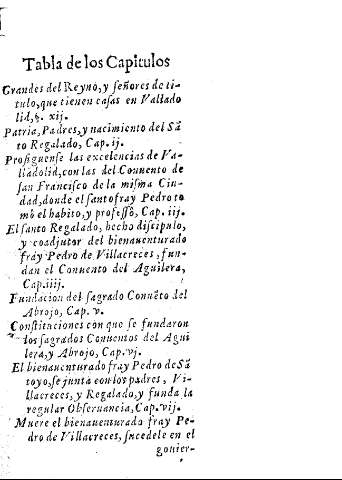 Tabla de los Capitulos
Grandes del Reyno, y señores de ti-
tulo, que tienen casas en Vallado
lid, §. xij.
Patria, Padres, y nacimiento del Sã
to Regalado, Cap. ij.
Prosiguense las excelencias de Va-
lladolid, con las del Conuento de
san Francisco de la misma Ciu-
dad, donde el santo fray Pedro to
mò el habito, y professò, Cap. iij.
El santo Regalado, hecho discipulo,
y coadjutor del bienauenturado
fray Pedro de Villacreces, fun-
dan el Conuento del Aguilera,
Cap. iiij.
Fundacion del sagrado Conuẽto del
Abrojo, Cap. v.
Constituciones con que se fundaron
los sagrados Conuentos del Agui
lera, y Abrojo, Cap. vj.
El bienauenturado fray Pedro de Sã
toyo, se junta con los padres, Vi-
llacreces, y Regalado, y funda la
regular Obseruancia, Cap. vij.
Muere el bienauenturado fray Pe-
dro de Villacreces, sucedele en el
gouier-